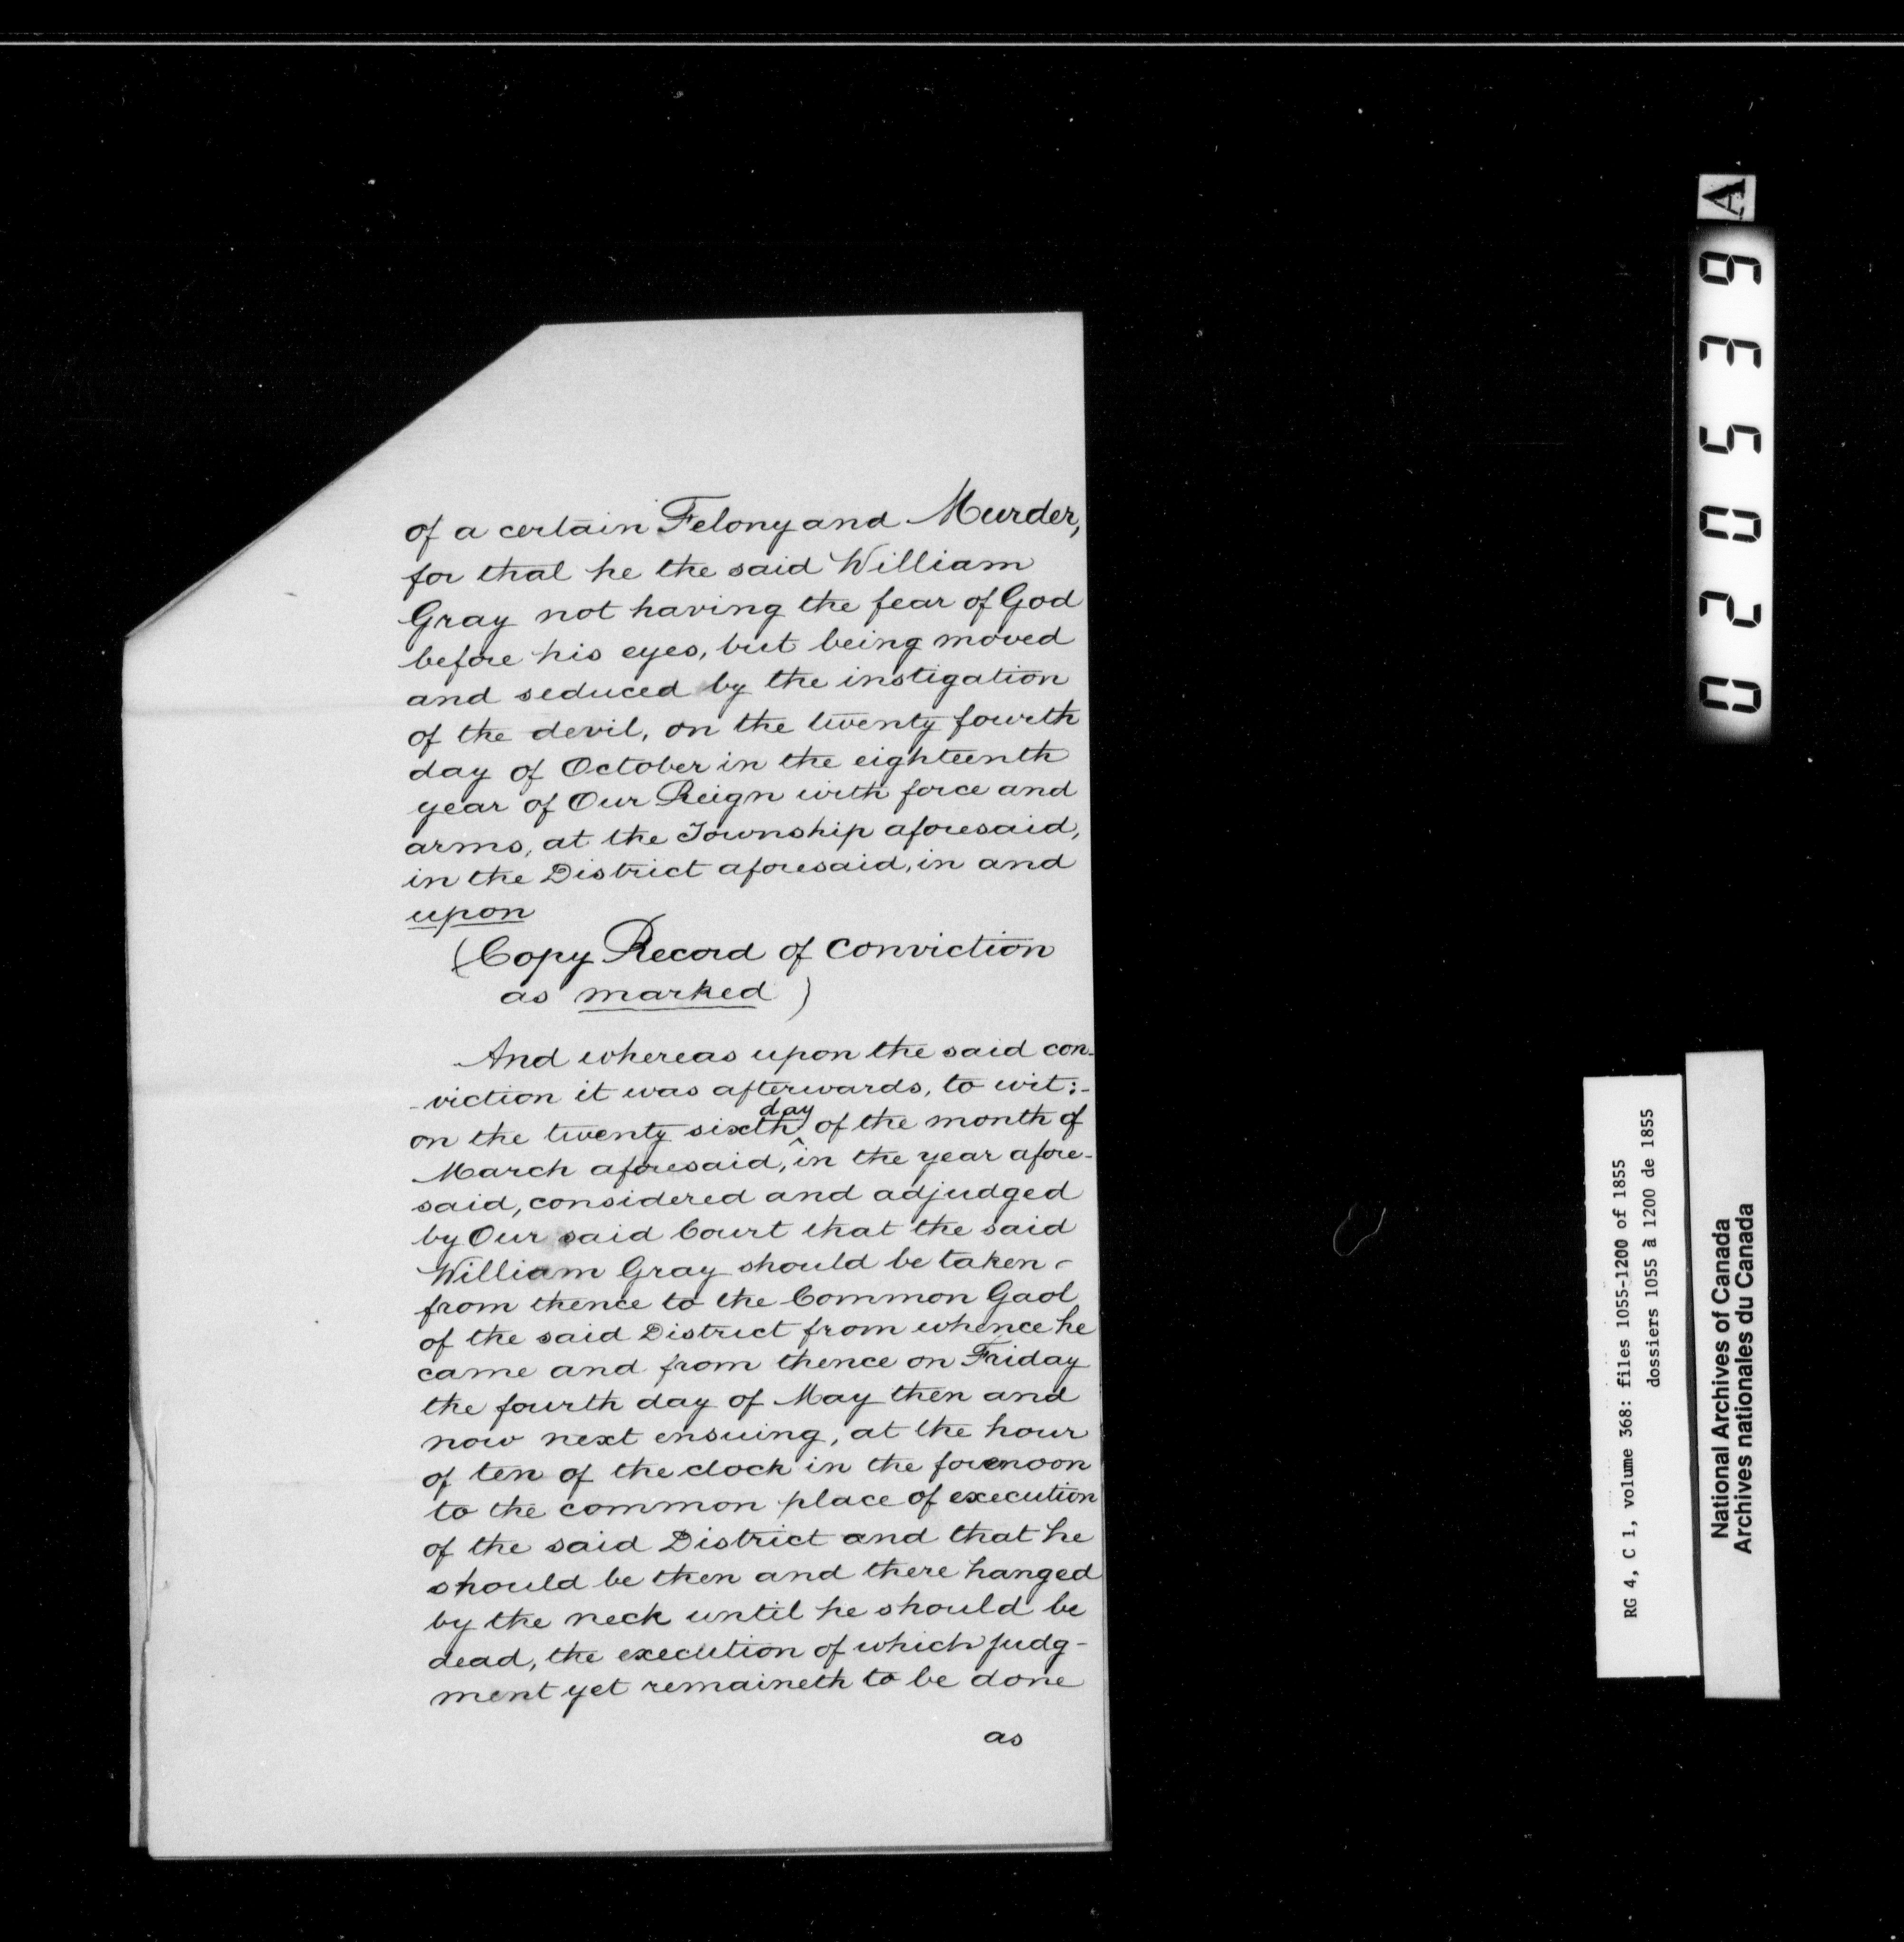 of a certain Felony and Murder,
for that he the said William
Gray not having the fear of God
before his eyes, but being moved
and seduced by the instigation
of the devil, on the twenty fourth
day of October in the eighteenth
year of Our Reign with force and
arms, at the Township aforesaid,
in the District aforesaid, in and
upon
(Copy Record of Conviction
as marked)
And whereas upon the said con-
-viction it was afterwards, to wit:-
day
on the twenty sixth ^ of the month of
March aforesaid, in the year afore-
said, considered and adjudged
by Our said Court that the said
William Gray should be taken
from thence to the Common Gaol
of the said District from whence he
came and from thence on Friday
the fourth day of May then and
now next ensuing, at the hour
of ten of the clock in the forenoon
to the common place of execution
of the said District and that he
should be then and there hanged
by the neck until he should be
dead, the execution of which judg-
ment yet remaineth to be done
as
020539 A
RG 4, C 1, volume 368: files 1055-1200 of 1855
dossiers 1055 à 1200 de 1855
National Archives of Canada
Archives nationales du Canada